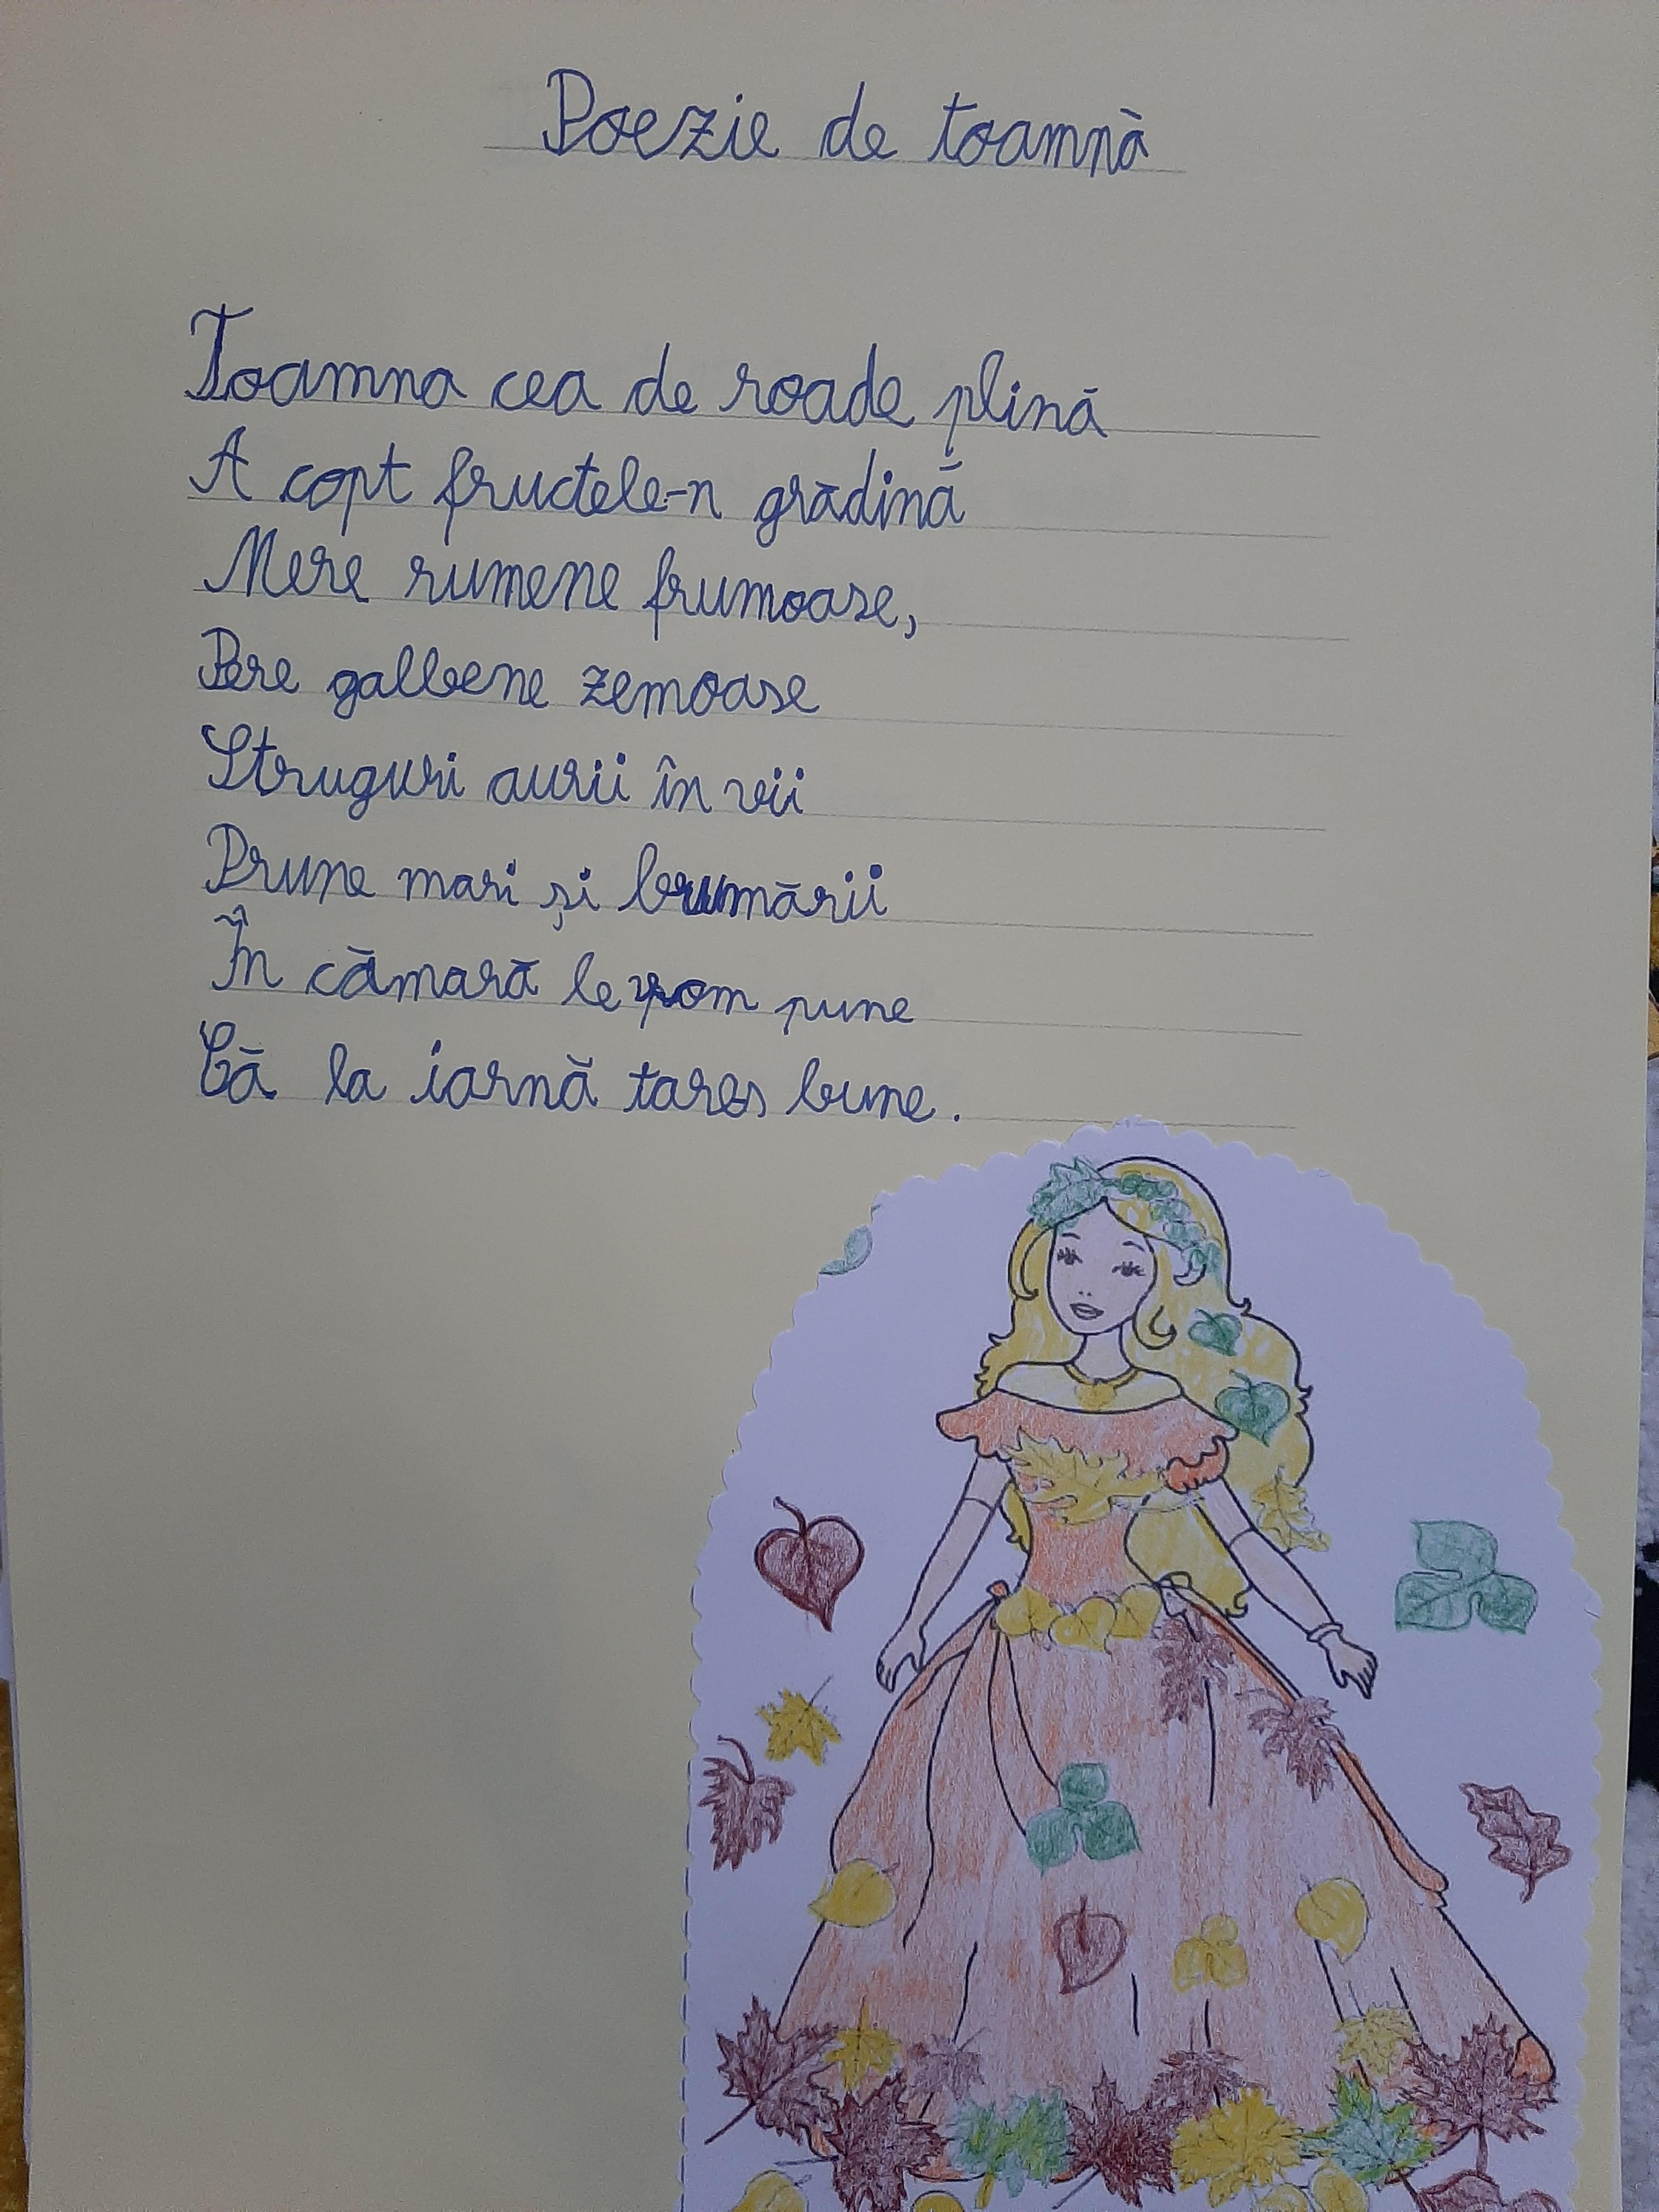 Poezie de toamnă
Toamna cea de roade plină
A copt fructele-n grădină
Mere rumene frumoase,
Pere galbene zemoase
Struguri aurii în vii
Prune mari și brumării
În cămară le vom pune
Că la iarnă tares bune.